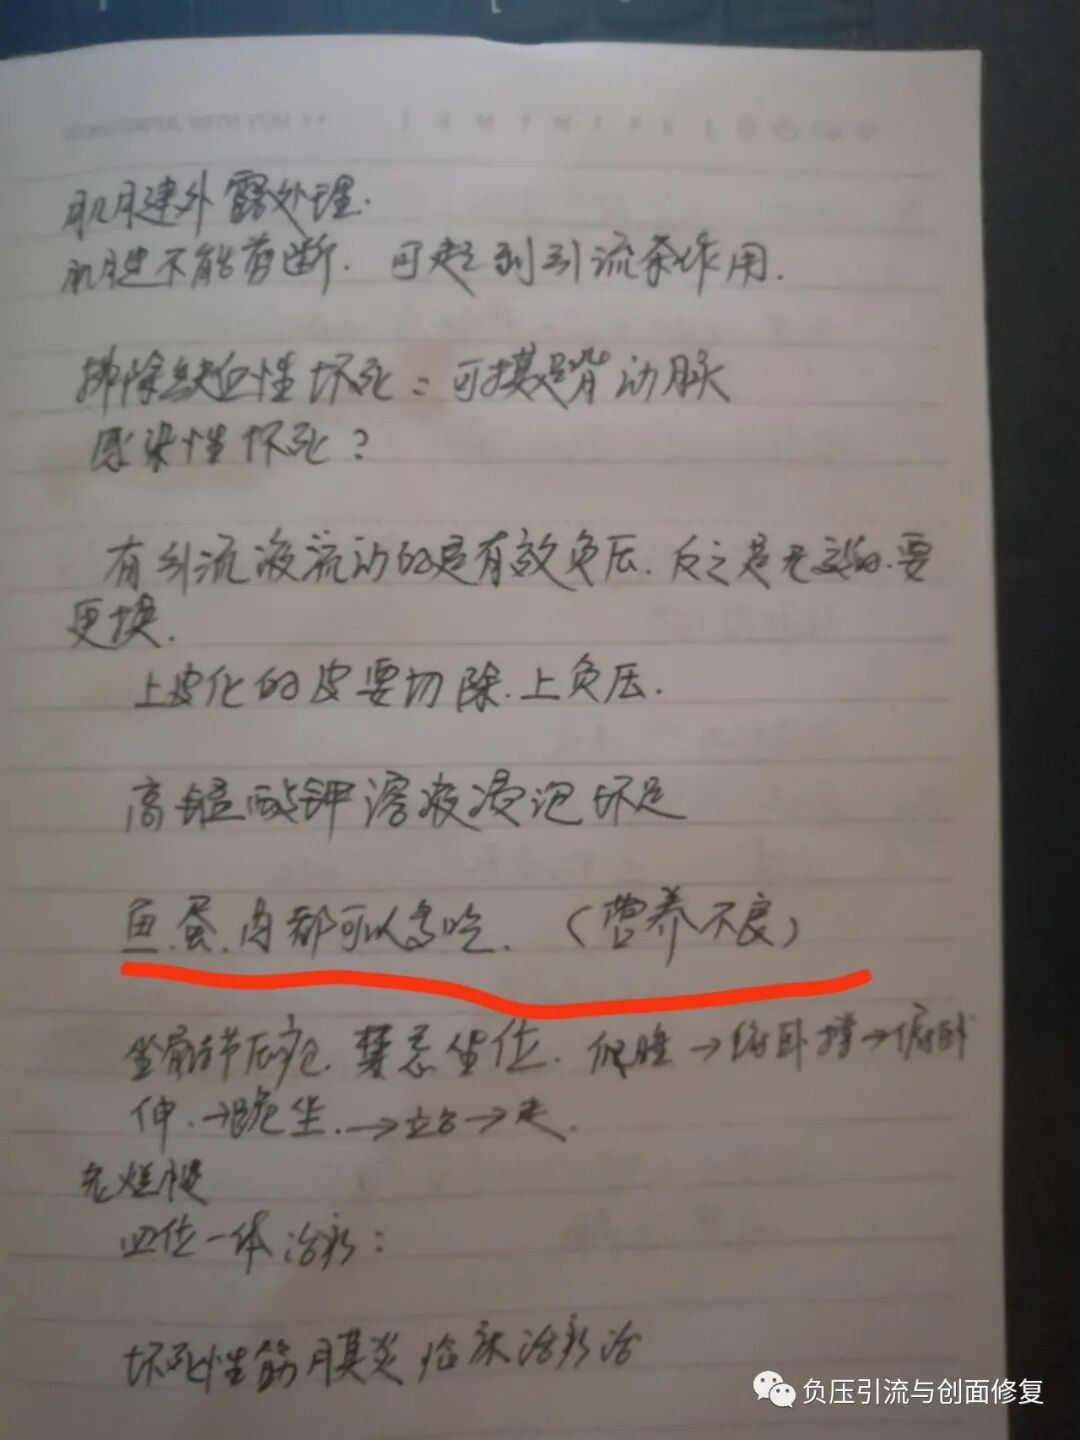 肌腱外露处理.
肌腱不能剪断. 可起到引流条作用.
排除缺血性坏死：可摸足背动脉
感染性坏死？
有引流液流动的是有效负压. 反之是无效的. 要
更换.
上皮化的皮要切除. 上负压.
高锰酸钾溶液浸泡坏足
鱼. 蛋. 肉都可以多吃. （营养不良）
坐骨结节压疮. 禁忌坐位. 爬睡→俯卧撑→俯卧
伸. →跪坐. →立→走.
老烂腿
四位一体治疗：
坏死性筋膜炎临床治疗治
负压引流与创面修复